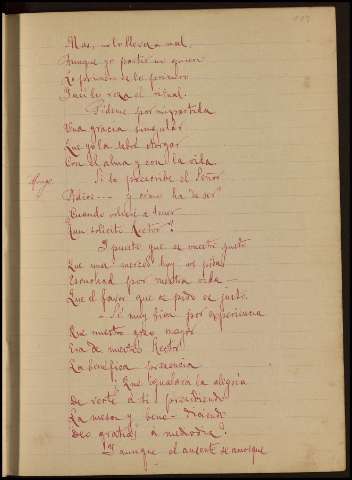 Mas, no lo lleves a mal,
Aunque yo partir no quiera
Lo primero de lo primero
Pues lo reza el ritual.
Pídeme por mi partida
Una gracia singular
Que yo la sabré otorgar
Con el alma y con la vida.
Si lo prescribe el Señor
Adios... y cómo ha de ser
Cuando volveré a tener
Tan solícito Rector?
Y puesto que es vuestro gusto
Que una merced hoy os pida
Escuchad por vuestra vida
Que el favor que se pide es justo.
Sé muy bien por experiencia
Que nuestro gozo mayor
Era de nuestro Rector
La benéfica presencia
¿Que igualara la alegría
De verte a ti presidiendo
La mesa y bendiciendo
Deo gratias a mediodía?
Y aunque el ausente se